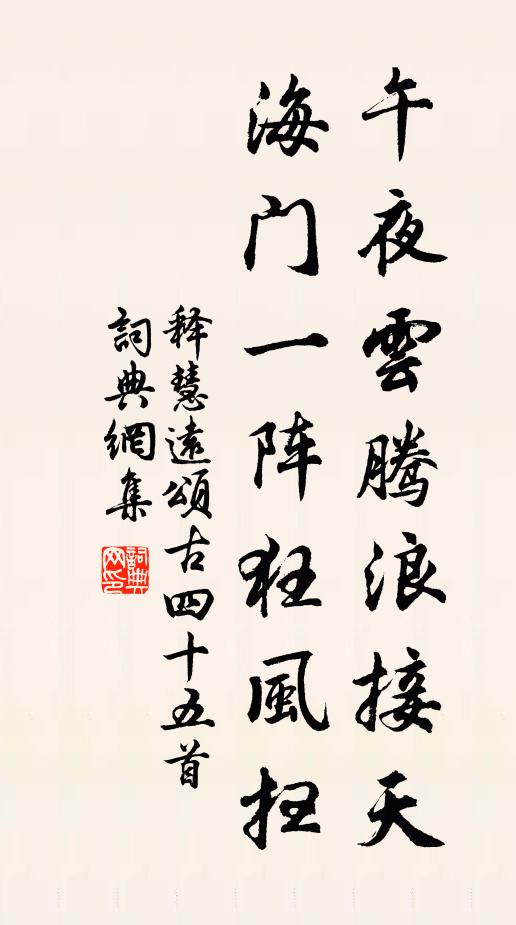 午夜雲腾浪接天
海门一阵狂風扫
释慧遠頌古四十五首
詞典網集
詞典网印